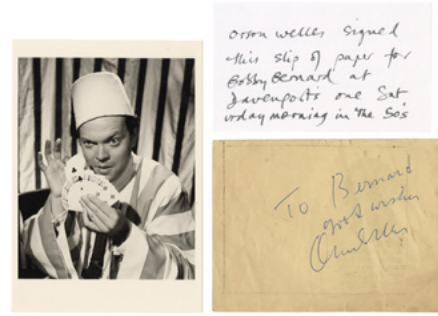 Orson Welles signed
this slip of paper for
Bobby Bernard at
Davenport's one Sat
urday morning in the 50's
To Bernard
Good wishes
Orson Welles